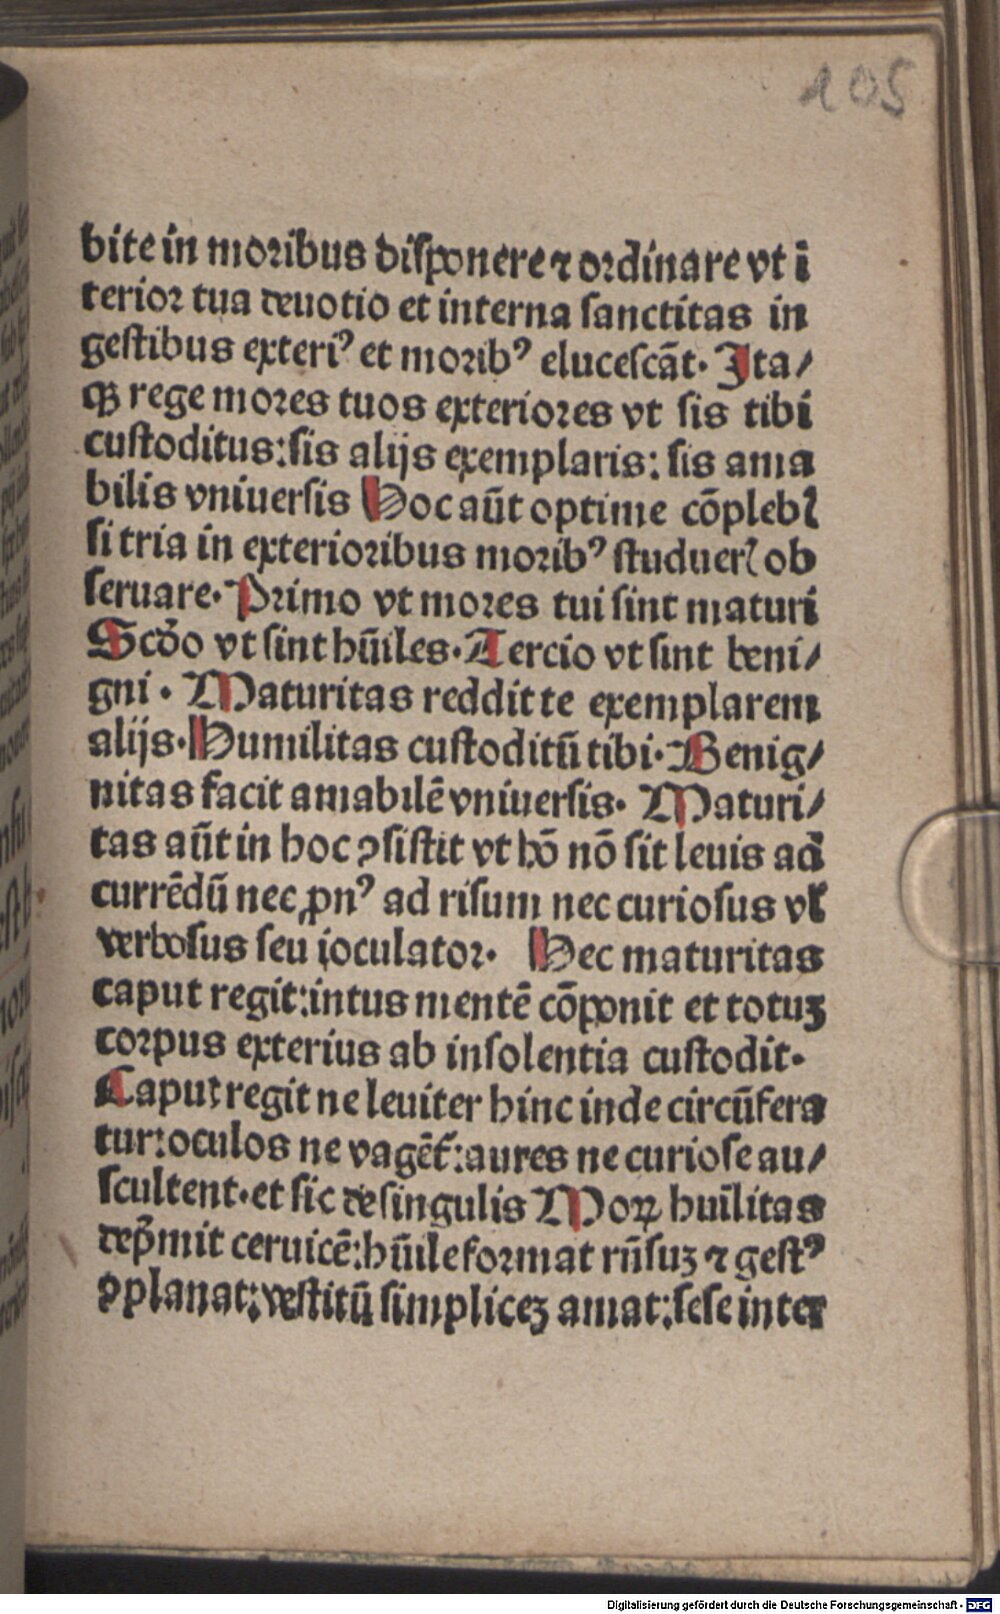 105
bite in moribus disponere ⁊ ordinare vt ī
terior tua deuotio et interna sanctitas in
gestibus exteriꝰ et moribꝰ elucescāt. Ita/
qꝫ rege mores tuos exteriores vt sis tibi
custoditus: sis alijs exemplaris: sis ama
bilis vniuersis Hoc aūt optime cōplebꝭ
si tria in exterioribus moribꝰ studuerꝭ ob
seruare. Primo vt mores tui sint maturi
Scd̄o vt sint hūiles. Tercio vt sint beni/
gni. Maturitas reddit te exemplarem
alijs. Humilitas custoditū tibi. Benig/
nitas facit amabilē vniuersis. Maturi/
tas aūt in hoc ꝯsistit vt hō nō sit leuis ad
currēdū nec ꝓnꝰ ad risum nec curiosus vl̓
verbosus seu ioculator. Hec maturitas
caput regit: intus mentē cōponit et totuꝫ
corpus exterius ab insolentia custodit.
Caput regit ne leuiter hinc inde circūfera
tur: oculos ne vagēt᷑: aures ne curiose au/
scultent. et sic de singulis Moꝝ huīlitas
dep̄mit ceruicē: hūile format rn̄suꝫ ⁊ gestꝰ
ꝯplanat: vestitū simpliceꝫ amat: sese inter
Digitalisierung gefördert durch die Deutsche Forschungsgemeinschaft - DFG